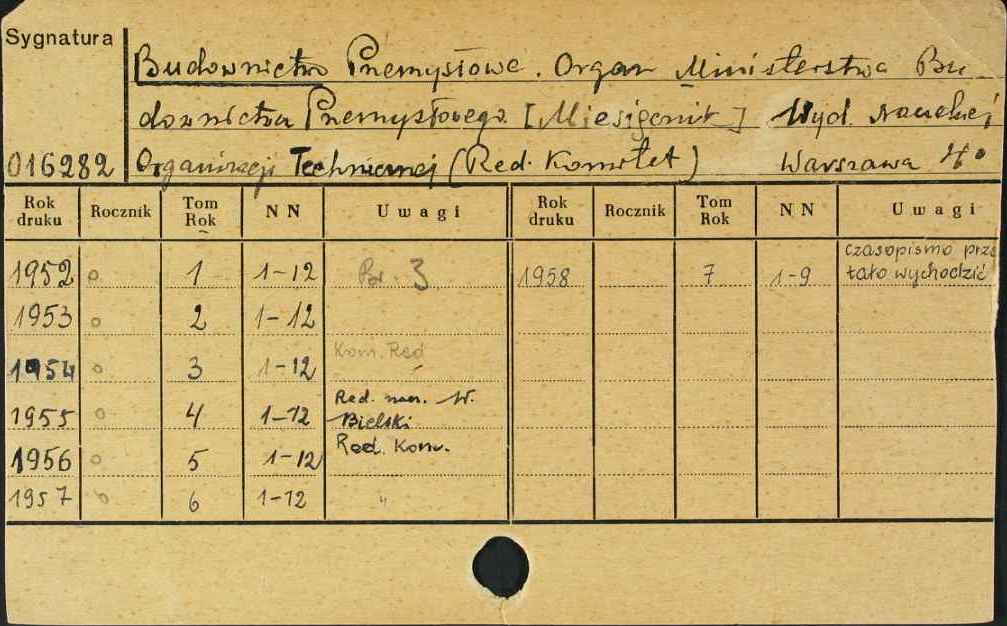 Sygnatura
Budownictwo Przemysłowe. Organ Ministerstwa Bu-
downictwa Przemysłowego [Miesięcznik] Wyd. Naczelnej
016282 Organizacji Technicznej (Red. Komitet) Warszawa 4°
Rok druku Rocznik Tom Rok NN Uwagi Rok druku Rocznik Tom Rok NN Uwagi
1952 o 1 1-12 Br. 3 1958 7 1-9 czasopismo prze
tało wychodzić
1953 o 2 1-12
1954 o 3 1-12 Kom. Red
1955 o 4 1-12 Red. nacz. W.
Bielski
1956 o 5 1-12 Red. Kom.
1957 o 6 1-12 "